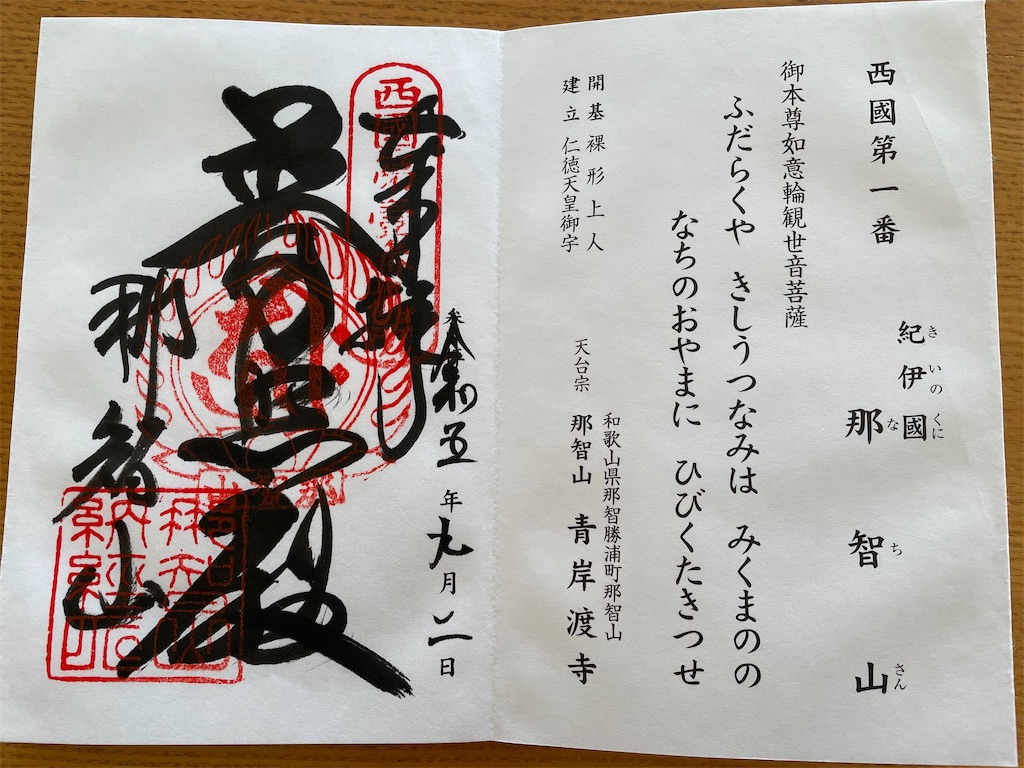 西國第一番
紀伊國
きいのくに
那智山
なちさん
御本尊如意輪観世音菩薩
ふだらくや きしうつなみは みくまのの
なちのおやまに ひびくたきつせ
開基 裸形上人
建立 仁徳天皇御宇
和歌山県那智勝浦町那智山
天台宗 那智山 青岸渡寺
奉拝
令和五年九月 日
普照殿
那智山